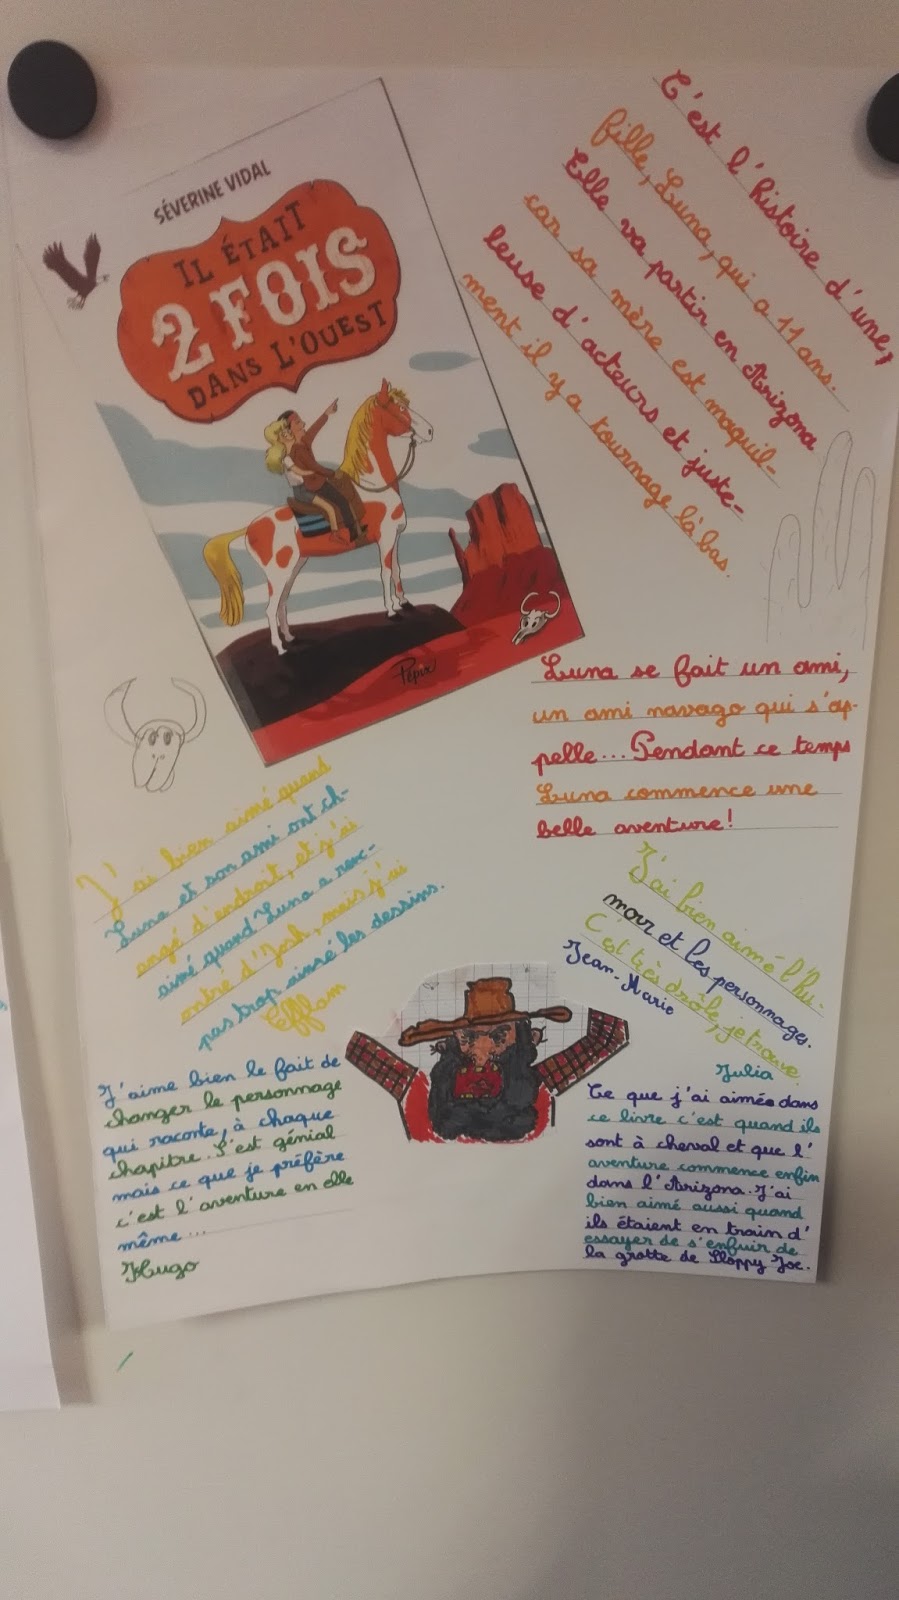 SÉVERINE VIDAL
IL ÉTAIT
2 FOIS
DANS L'OUEST
Pépix
C'est l'histoire d'une,
fille, Luna, qui a 11 ans.
Elle va partir en Arizona
car sa mère est maquil-
leuse d'acteurs et juste-
ment il y a tournage là bas.
Luna se fait un ami,
un ami navago qui s'ap-
pelle... Pendant ce temps
Luna commence une
belle aventure!
J'ai bien aimé quand
Luna et son ami ont ch-
angé d'endroit, et j'ai
aimé quand Luna a renc-
ontré d'Josh, mais j'ai
pas trop aimé les dessins.
Efflam
J'ai bien aimé l'hu-
mour et les personnages.
C'est très drôle, je trouve.
Jean-Mario
J'aime bien le fait de
changer le personnage
qui raconte, à chaque
chapitre. C'est génial
mais ce que je préfère
c'est l'aventure en elle
même ...
Hugo
Julia
Ce que j'ai aimée dans
ce livre c'est quand ils
sont à cheval et que l'
aventure commence enfin
dans l'Arizona. J'ai
bien aimé aussi quand
ils étaient en train d'
essayer de s'enfuir de
la grotte de Sloppy Joe.